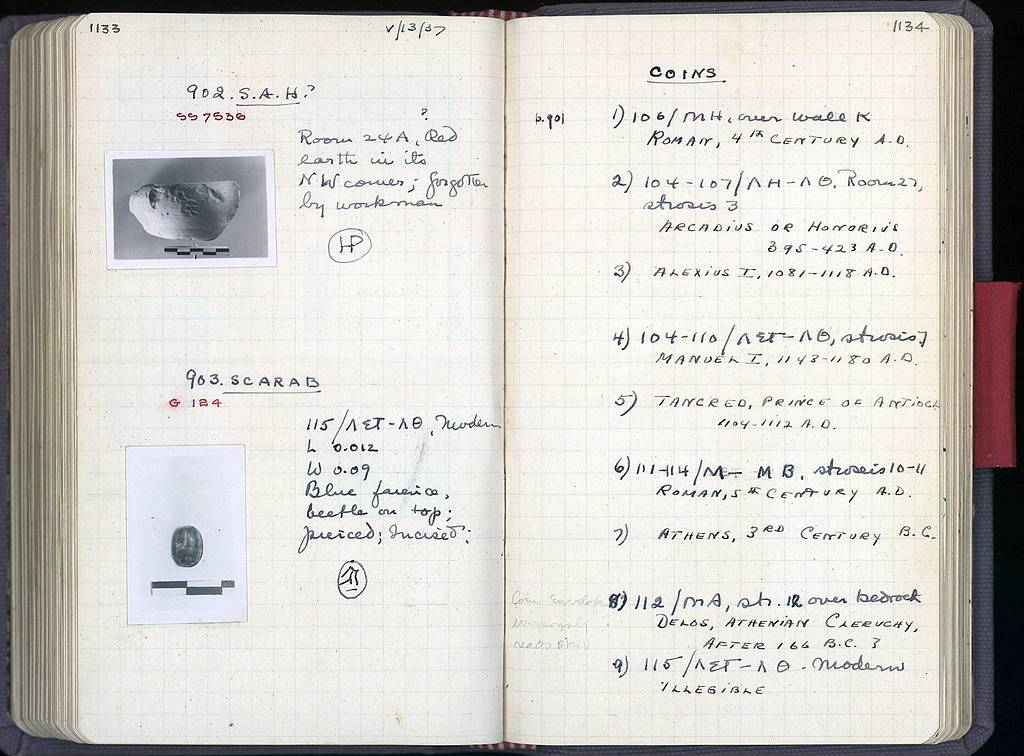 1133
V/13/37
902. S.A.H.?
SS 7536
?
Room 24A, Red
earth in its
NW corner; forgotten
by workman
HP
903. SCARAB
G 184
115/ΛΣΤ-ΛΘ, Modern
L 0.012
W 0.09
Blue faience,
beetle on top;
pierced; Incised:
1134
COINS
p. 901
1) 106/ΜΗ, over wall K
ROMAN, 4TH CENTURY A.D.
2) 104-107/ΛΗ-ΛΘ. Room 27,
strosis 3
ARCADIUS OR HONORIUS
395-423 A.D.
3) ALEXIUS I, 1081-1118 A.D.
4) 104-110/ΛΣΤ-ΛΘ, strosis 7
MANUEL I, 1143-1180 A.D.
5) TANCRED, PRINCE OF ANTIOCH
1104-1112 A.D.
6) 111-114/Μ- ΜΒ. stroseis 10-11
ROMAN, 5TH CENTURY A.D.
7) ATHENS, 3RD CENTURY B.C.
Coin Envelope
erroneously
reads
8) 112/ΜΑ, str. 12 over bedrock
DELOS, ATHENIAN CLERUCHY,
AFTER 166 B.C. ?
9) 115/ΛΣΤ-ΛΘ. Modern
ILLEGIBLE